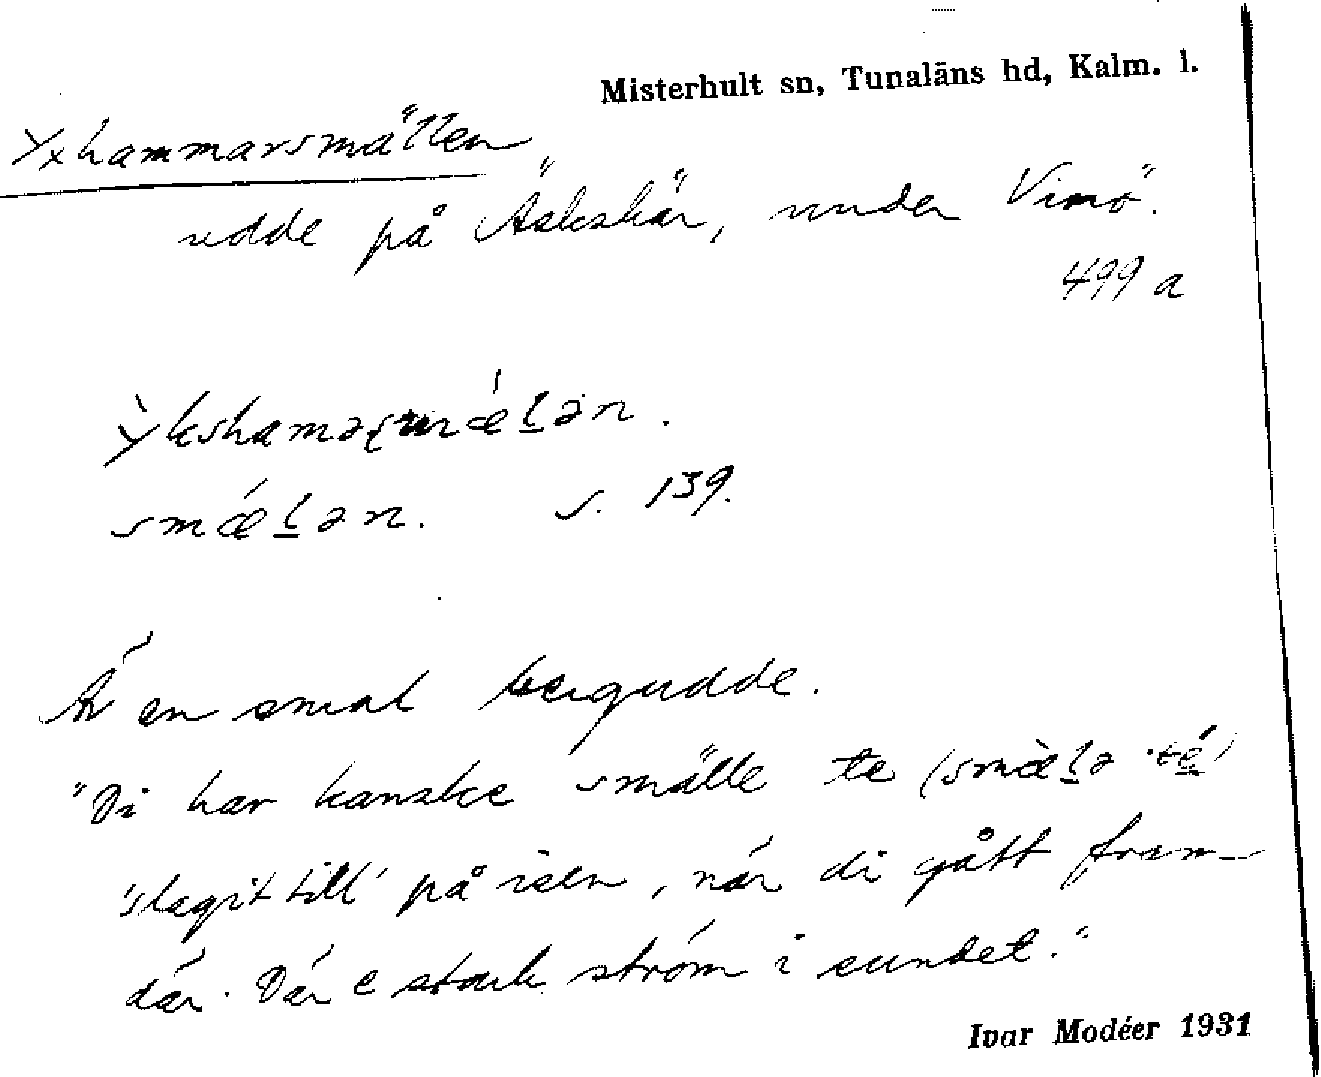 Misterhult sn, Tunaläns hd, Kalm. l.
Yxhammarsmällen
udde på Äskskär, under Vinö.
499 a
smǽLən. s. 139.
Är en smal bergudde.
"Di har kanske smälle te (smæ̀Lə té)
'slagit till' på isen, när di gått fram
där. Där e stark ström i sundet."
Ivar Modéer 1931